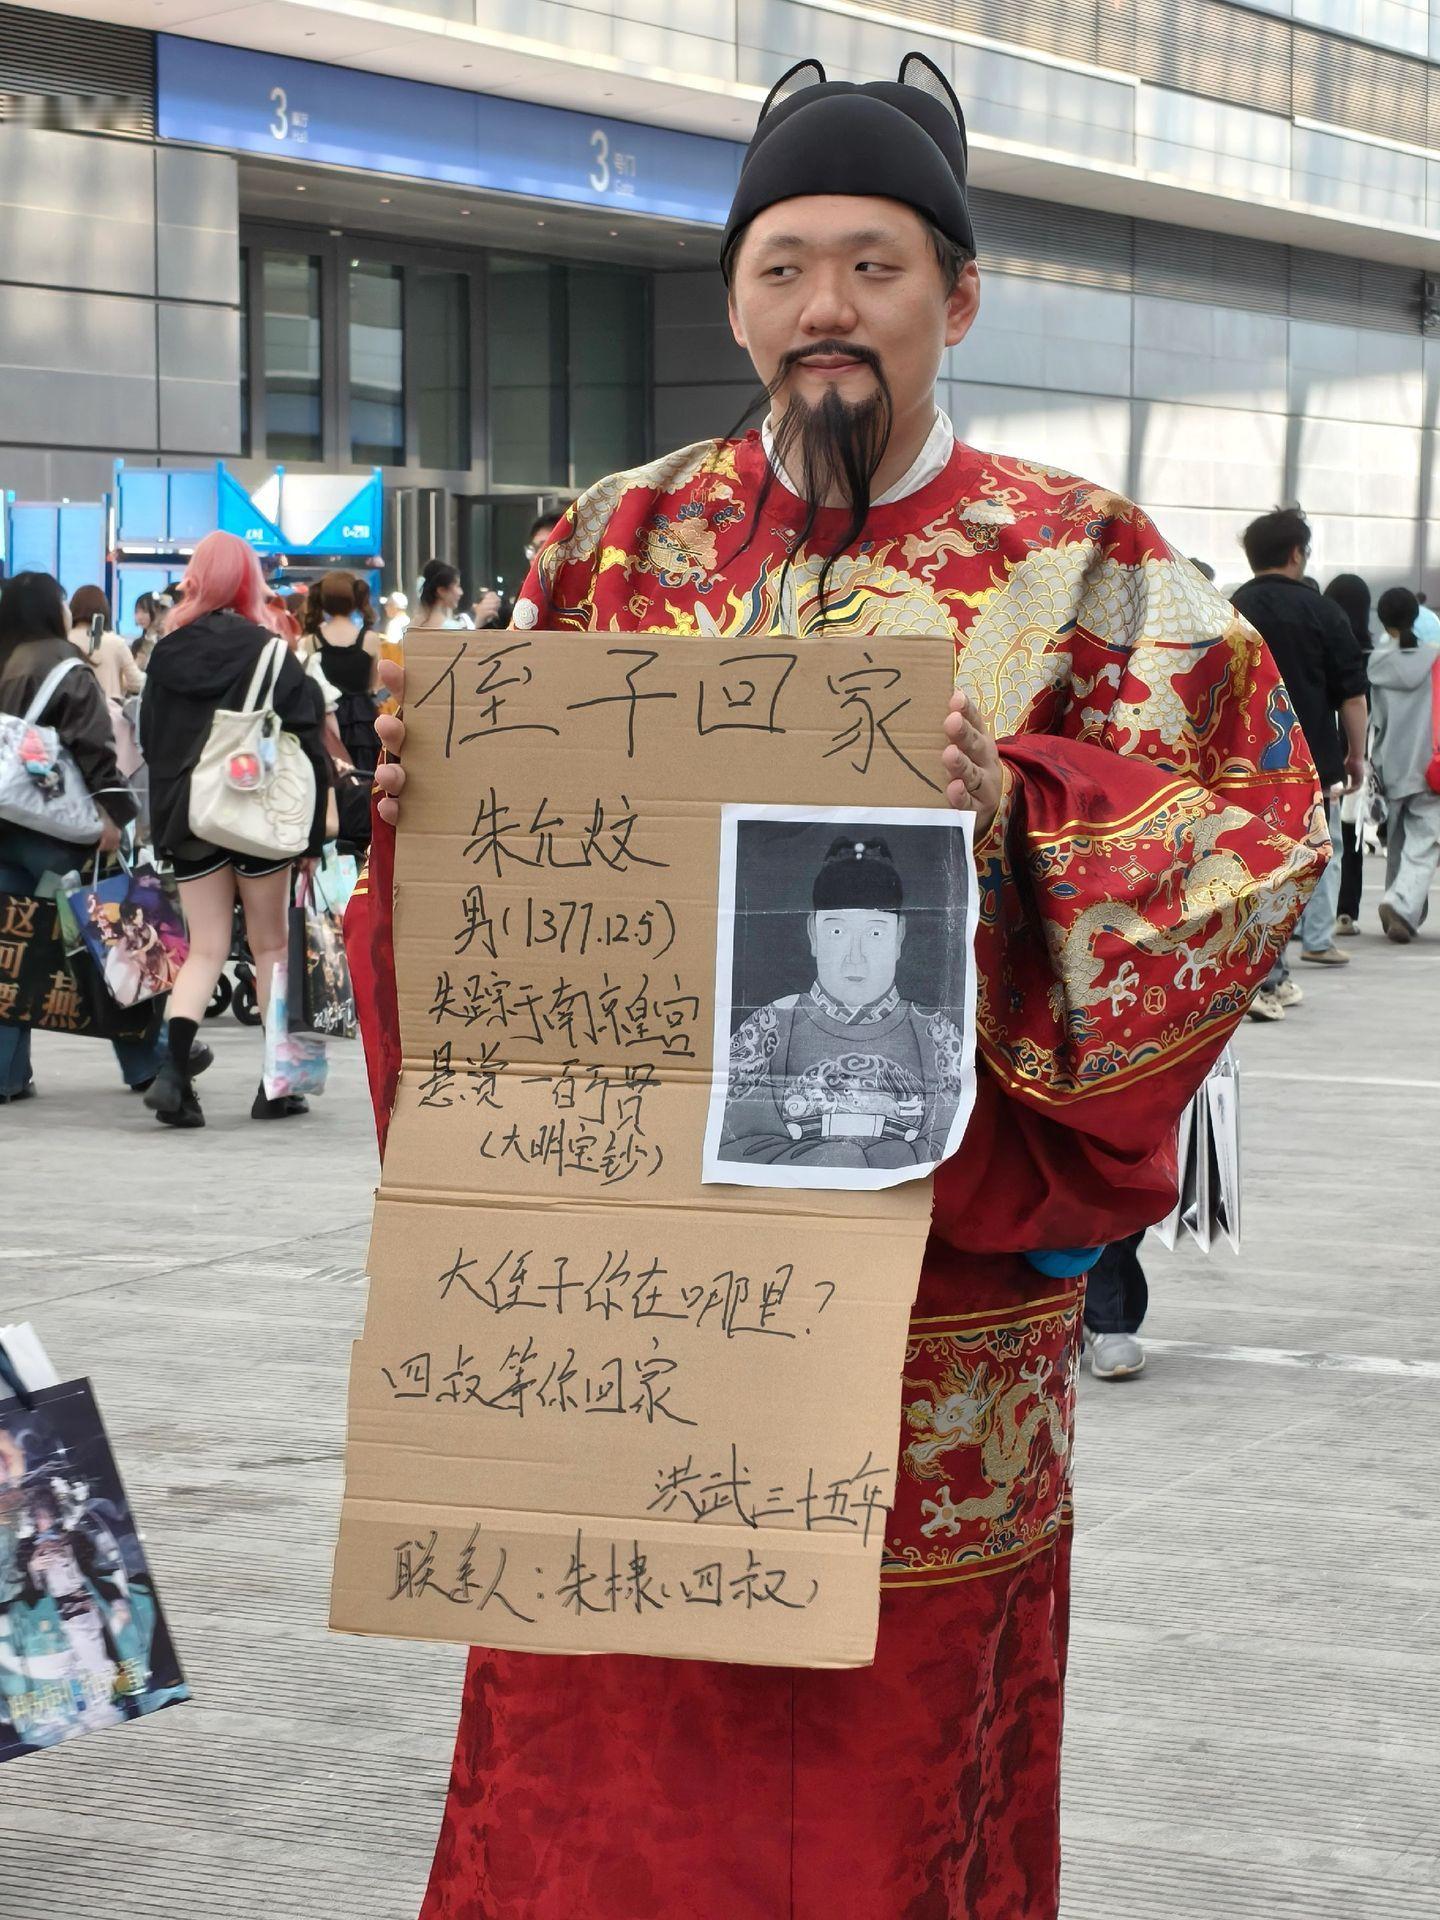 3
展厅
Hall
3
号门
Gate
侄子回家
朱允炆
男(1377.12.5)
失踪于南京皇宫
悬赏一百于贯
(大明宝钞)
大侄子你在哪里?
四叔等你回家
洪武三十五年
联系人:朱棣(四叔)
这
可
要燕